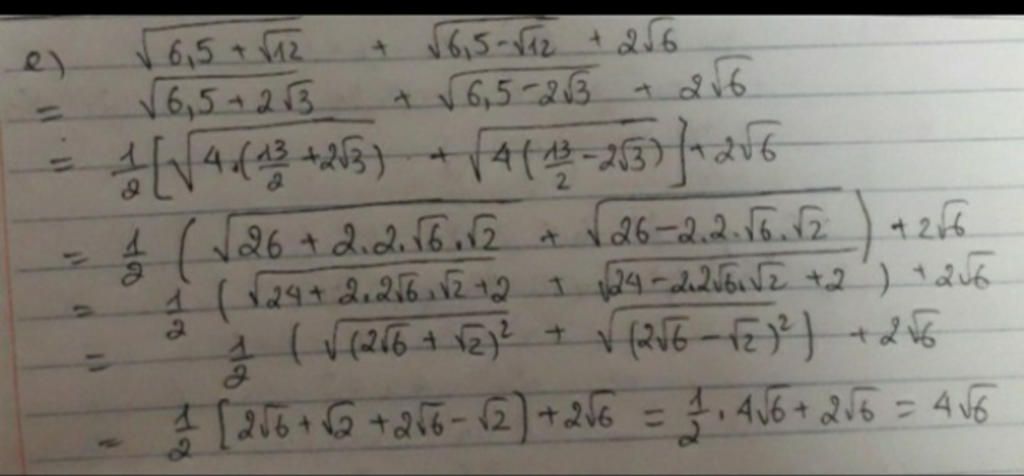 e) √(6,5 + √12) + √(6,5 - √12) + 2√6
= √(6,5 + 2√3) + √(6,5 - 2√3) + 2√6
= 1/2 [√(4.(13/2 + 2√3)) + √(4(13/2 - 2√3))] + 2√6
= 1/2 (√(26 + 2.2.√6.√2) + √(26 - 2.2.√6.√2)) + 2√6
= 1/2 (√(24 + 2.2√6.√2 + 2) + √(24 - 2.2√6.√2 + 2)) + 2√6
= 1/2 (√((2√6 + √2)²) + √((2√6 - √2)²)) + 2√6
= 1/2 [2√6 + √2 + 2√6 - √2] + 2√6 = 1/2 . 4√6 + 2√6 = 4√6